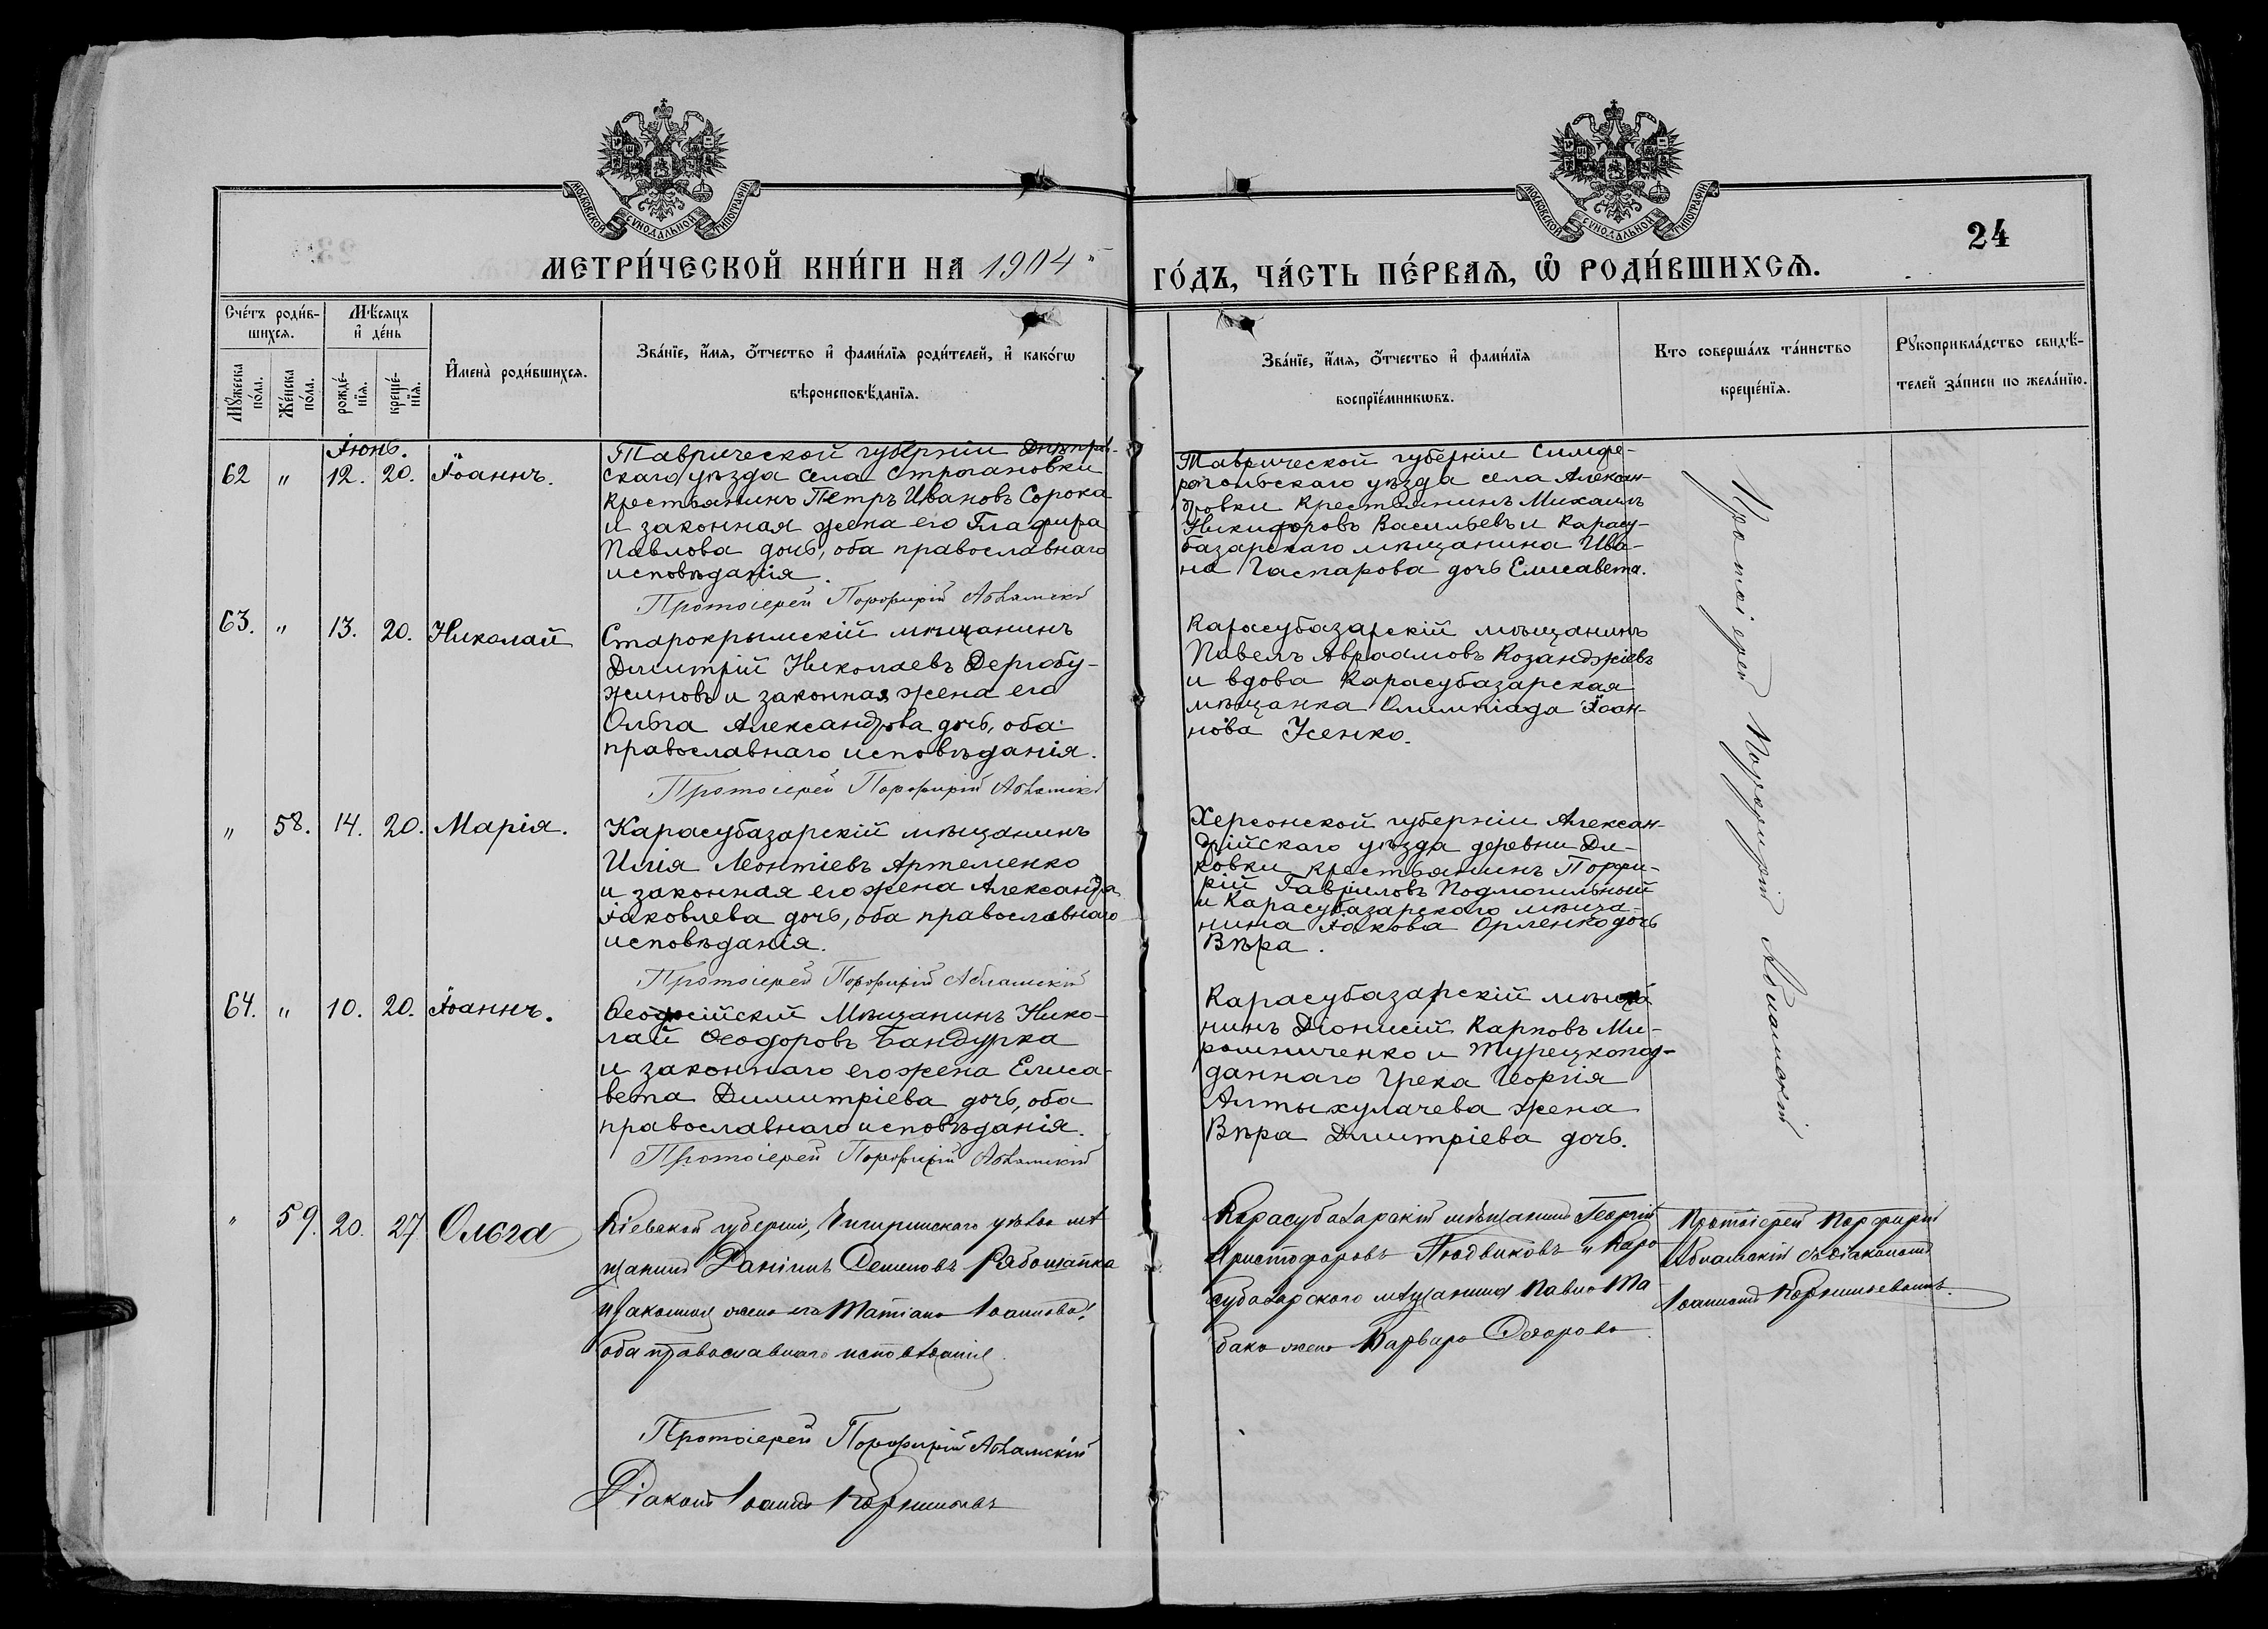 МОСКОВСКОЙ СѴНОДАЛЬНОЙ ТИПОГРАФІИ
МОСКОВСКОЙ СѴНОДАЛЬНОЙ ТИПОГРАФІИ
24
МЕТРИ́ЧЕСКОЙ КНИ́ГИ НА 1904
ГО́ДЪ, ЧА́СТЬ ПЕ́РВАѦ, Ѡ҆ РОДИ́ВШИХСѦ.
Сче́тъ роди́в-
шихсѧ.
Мѣ́сяцъ
и҆ де́нь
Мꙋ́жеска
по́ла.
Же́нска
по́ла.
рожде́-
нїѧ.
креще́-
нїѧ.
И҆мена̀ роди́вшихсѧ.
Зва́нїе, и҆́мѧ, ѻ҆́тчество и҆ фами́лїѧ роди́телей, и҆ како́гѡ
вѣроисповѣ́данїѧ.
Зва́нїе, и҆́мѧ, ѻ҆́тчество и҆ фами́лїѧ
воспрїе́мникѡвъ.
Кто соверша́лъ та́инство
креще́нїѧ.
Рꙋкоприкла́дство свидѣ́-
телей за́писи по жела́нїю.
Іюнь.
62 " 12. 20. Іоаннъ.
Таврической губерніи Днѣпров-
скаго уѣзда села Строгановки
крестьянинъ Петръ Ивановъ Сорока
и законная жена его Глафира
Павлова дочь, оба православнаго
исповѣданія.
Протоіерей Порфирій Абламскій
Таврической губерніи Симфе-
ропольскаго уѣзда села Алексан-
дровки крестьянинъ Михаилъ
Никифоровъ Васильевъ и Карасу-
базарскаго мѣщанина Ива-
на Гаспарова дочь Елисавета.
Протоіерей Порфирій Абламскій
63. " 13. 20. Николай
Старокрымскій мѣщанинъ
Димитрій Николаевъ Дергабу-
жиновъ и законная жена его
Ольга Александрова дочь, оба
православнаго исповѣданія.
Протоіерей Порфирій Абламскій
Карасубазарскій мѣщанинъ
Павелъ Авраамовъ Козанджіевъ
и вдова Карасубазарская
мѣщанка Олимпіада Іоан-
нова Усенко.
" 58. 14. 20. Марія.
Карасубазарскій мѣщанинъ
Илія Леонтіевъ Артеменко
и законная его жена Александра
Іаковлева дочь, оба православнаго
исповѣданія.
Протоіерей Порфирій Абламскій
Херсонской губерніи Алексан-
дрійскаго уѣзда деревни Ди-
ковки крестьянинъ Порфи-
рій Гавріиловъ Подмогильный
и Карасубазарскаго мѣща-
нина Іакова Орленко дочь
Вѣра.
64. " 10. 20. Іоаннъ.
Ѳеодосійскій Мѣщанинъ Нико-
лай Ѳеодоровъ Бандурка
и законнаго его жена Елиса-
вета Димитріева дочь, оба
православнаго исповѣданія.
Протоіерей Порфирій Абламскій
Карасубазарскій мѣща
нинъ Діонисій Карповъ Ми-
рошниченко и Турецкопод-
даннаго Грека Георгія
Алтыкулачева жена
Вѣра Димитріева дочь.
" 59. 20. 27 Ольга
Кіевской губерніи, Чигиринскаго уѣзда мѣ
щанинъ Даніилъ Семеновъ Рябошапка
и законная жена его Татіана Іоаннова,
оба православнаго исповѣданія
Протоіерей Порфирій Абламскій
Діаконъ Іоаннъ Корниловъ
Карасубазарскій мѣщанинъ Георгій
Христофоровъ Людвиковъ и Кара
субазарскаго мѣщанина Павла Та
бака жена Варвара Ѳедорова
Протоіерей Порфирій
Абламскій съ діакономъ
Іоанномъ